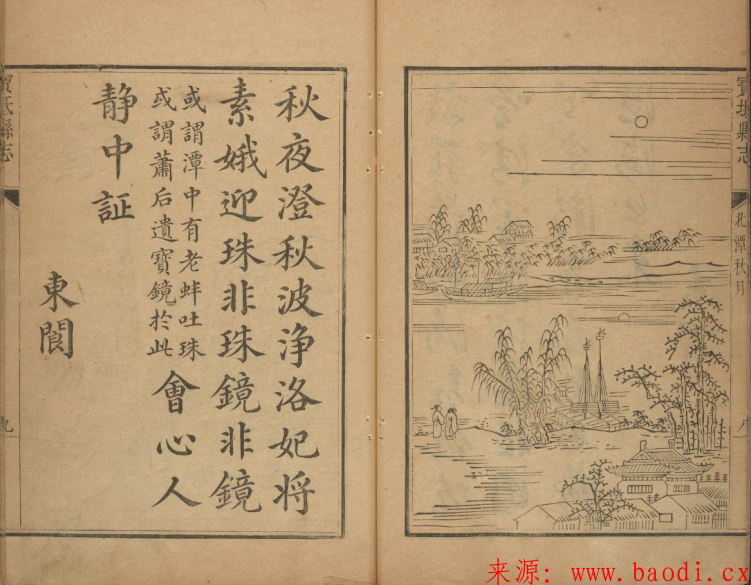 寳坻縣志
秋月
秋夜澄秋波浄洛妃将
素娥迎珠非珠鏡非鏡
或謂潭中有老蚌吐珠
或謂蕭后遺寳鏡於此
會心人
静中証
東閬
寳坻縣志
九
来源: www.baodi.cx